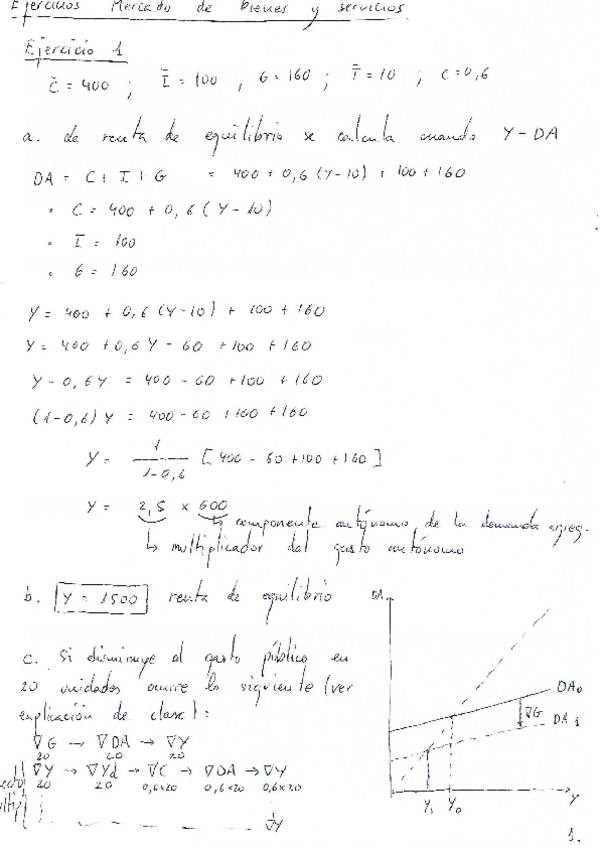 Ejercicios Mercado de bienes y servicios
Ejercicio 1
C̄ = 400 ; Ī = 100 , G = 160 ; T̄ = 10 ; c = 0,6
a. La renta de equilibrio se calcula cuando Y - DA
DA = C + I + G = 400 + 0,6 (Y-10) + 100 + 160
· C = 400 + 0,6 (Y - 10)
· Ī = 100
· G = 160
Y = 400 + 0,6 (Y-10) + 100 + 160
Y = 400 + 0,6 Y - 60 + 100 + 160
Y - 0,6 Y = 400 - 60 + 100 + 160
(1-0,6) Y = 400 - 60 + 100 + 160
Y = 1 / 1-0,6 [ 400 - 60 + 100 + 160 ]
Y = 2,5 x 600
↳ componente autónomo de la demanda agreg.
↳ multiplicador del gasto autónomo
b. Y = 1500 renta de equilibrio
c. Si disminuye el gasto público en
20 unidades ocurre lo siguiente (ver
explicación de clase):
∇G → ∇DA → ∇Y
20 20 20
∇Y → ∇Yd → ∇C → ∇DA → ∇Y
20 20 0,6x20 0,6x20 0,6x20
∇Y
DA
DA₀
∇G
DA₁
Y₁ Y₀ Y
1.